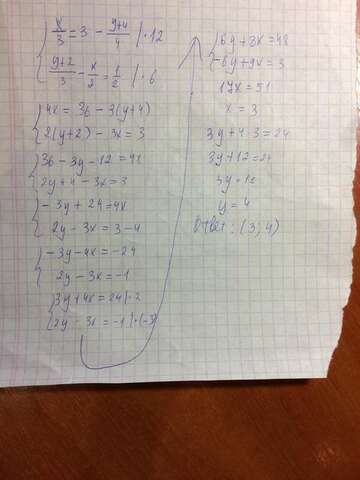 x/3 = 3 - y+4/4 |·12
y+2/3 - x/2 = 1/2 |·6
4x = 36 - 3(y+4)
2(y+2) - 3x = 3
36 - 3y - 12 = 4x
2y + 4 - 3x = 3
-3y + 24 = 4x
2y - 3x = 3 - 4
-3y - 4x = -24
2y - 3x = -1
3y + 4x = 24 |·2
2y - 3x = -1 |·(-3)
6y + 8x = 48
-6y + 9x = 3
17x = 51
x = 3
3y + 4·3 = 24
3y + 12 = 24
3y = 12
y = 4
Ответ: (3; 4)